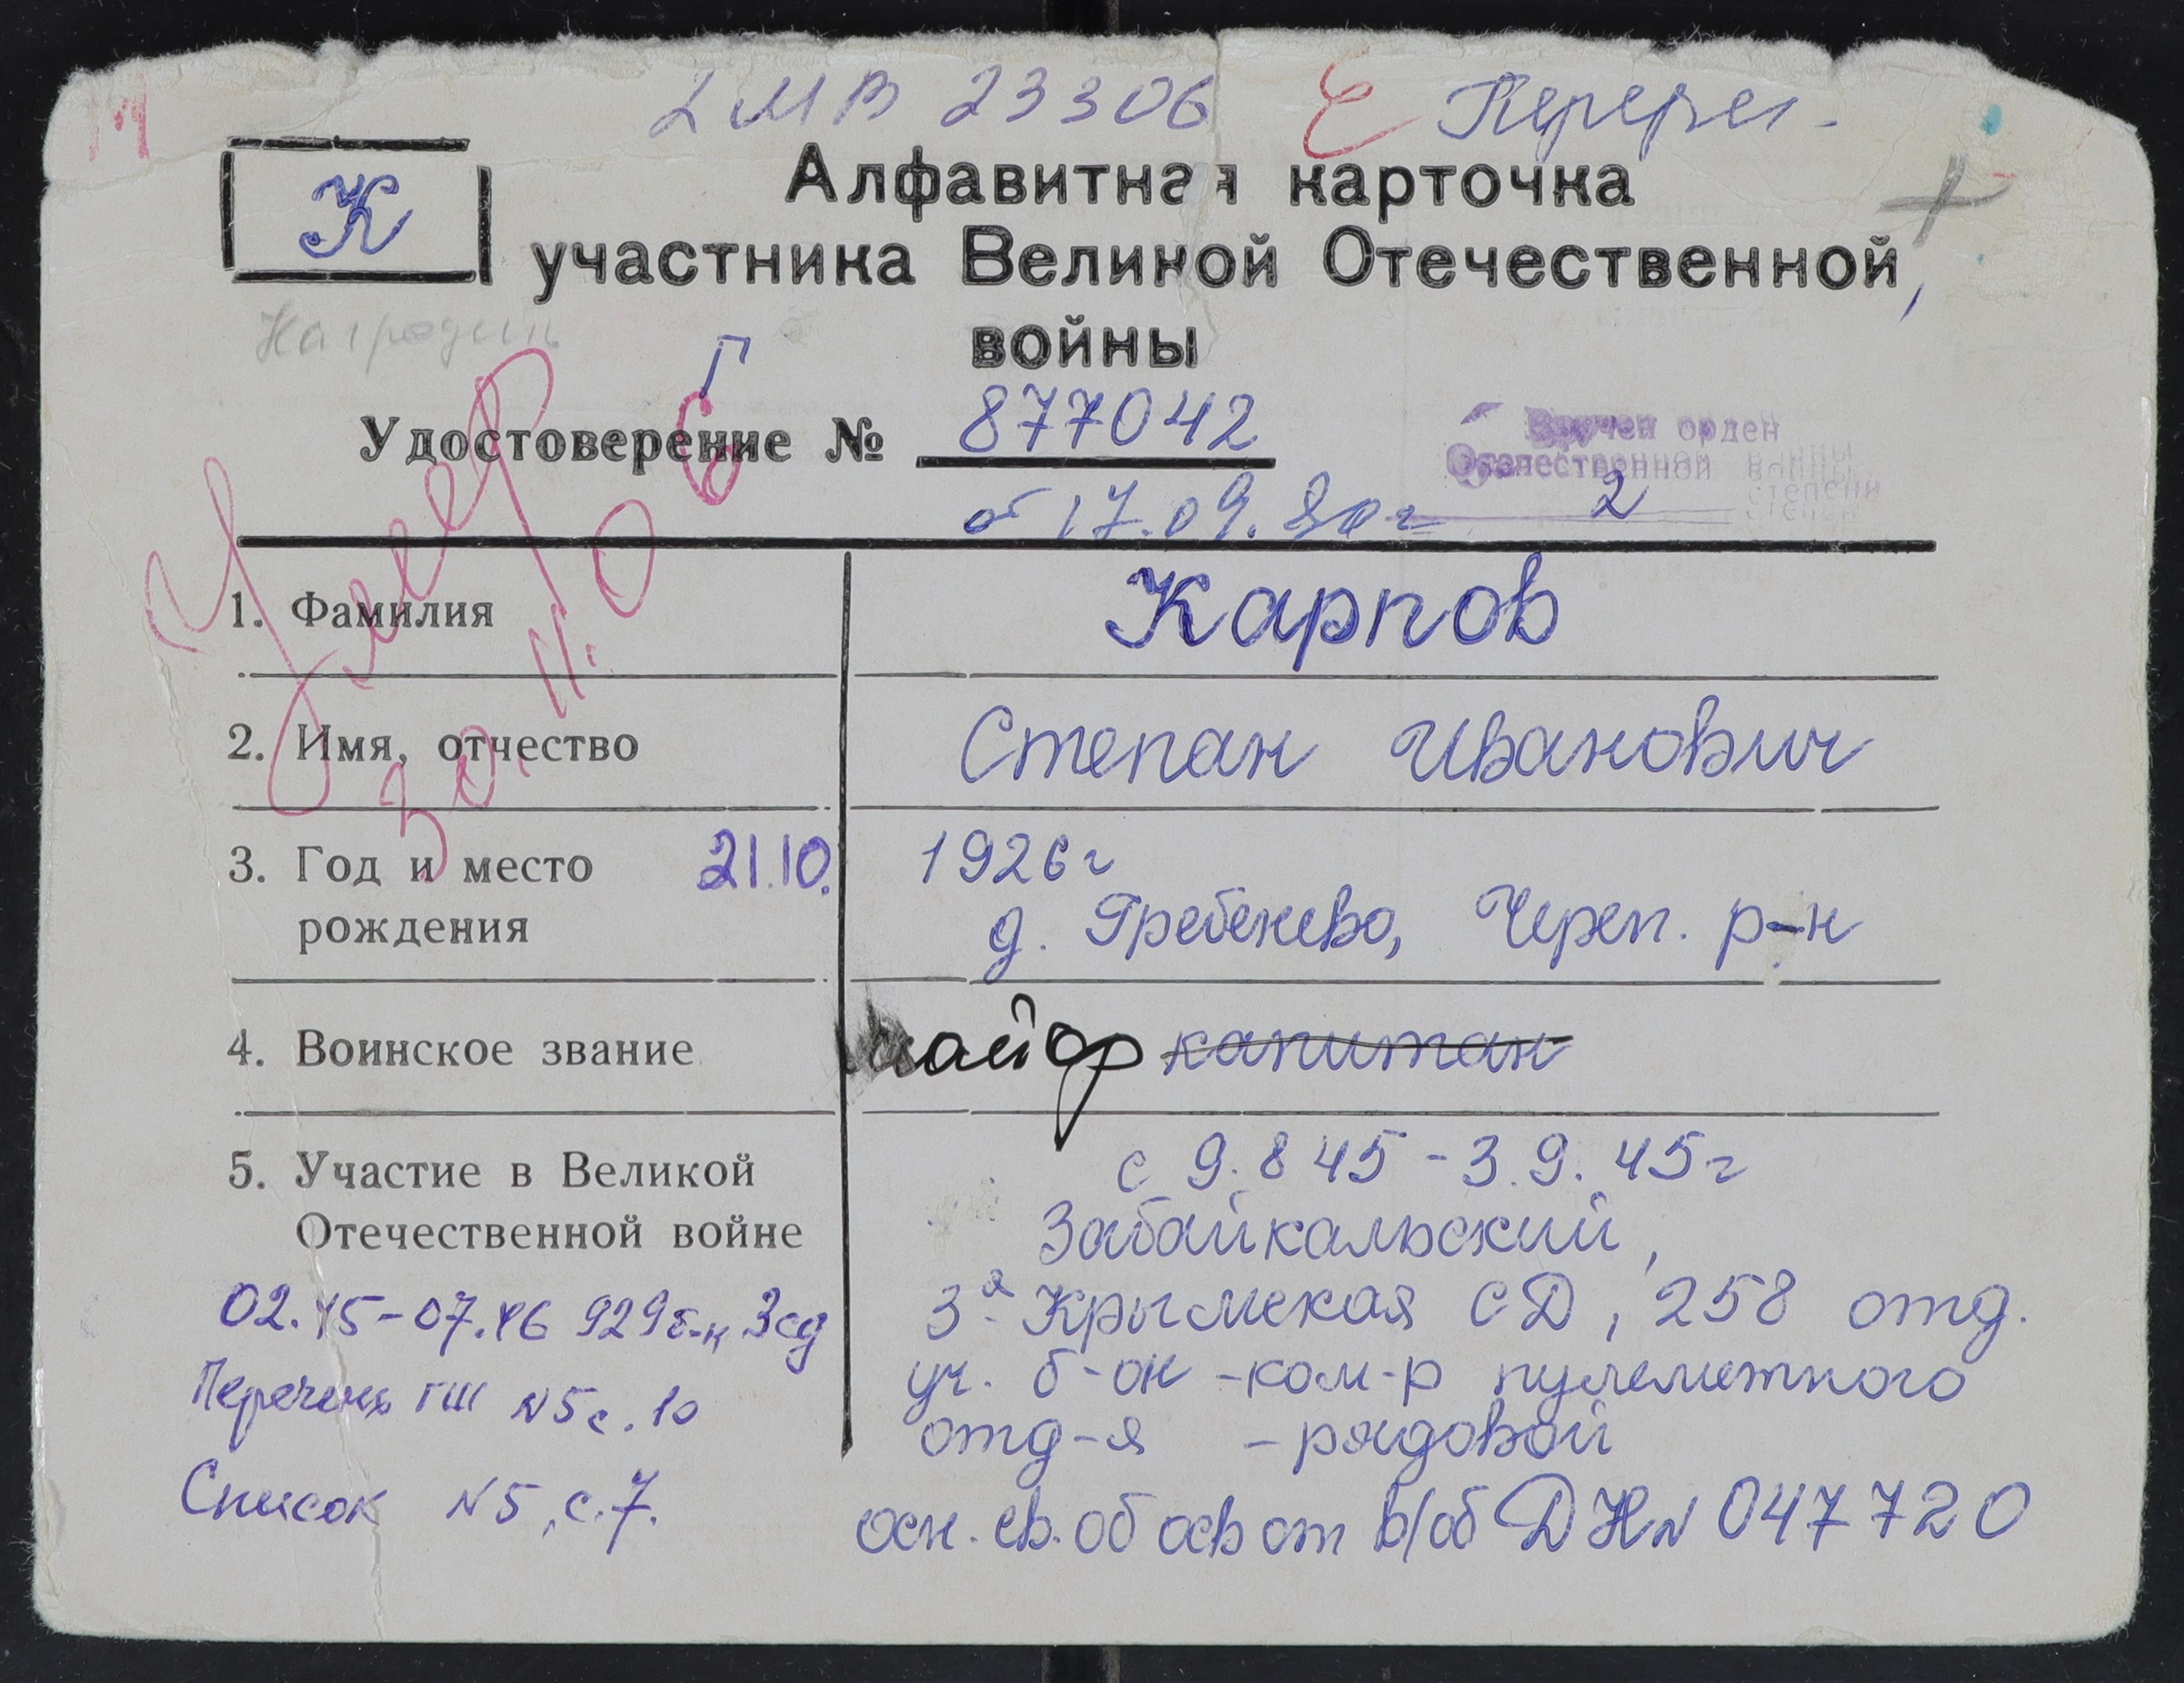 23306 Е Перерег.
К
Алфавитная карточка
участника Великой Отечественной
войны
Награжден
Г
Удостоверение № 877042
от 17.09.80 г
Вручен орден
Отечественной войны
2 степени
Умер 30.11.06
1. Фамилия Карпов
2. Имя, отчество Степан Иванович
3. Год и место рождения 21.10. 1926 г
д. Гребенево, Череп. р-н
4. Воинское звание майор капитан
5. Участие в Великой Отечественной войне
с 9.8 45 - 3.9.45 г
Забайкальский,
3-я Крымская СД, 258 отд.
уч. б-он - ком-р пулеметного
отд-я - рядовой
осн. св. об осв от в/об ДН № 047720
02.45-07.46 929 б-н 3сд
Перечень ГШ №5 с. 10
Список №5, с. 7.